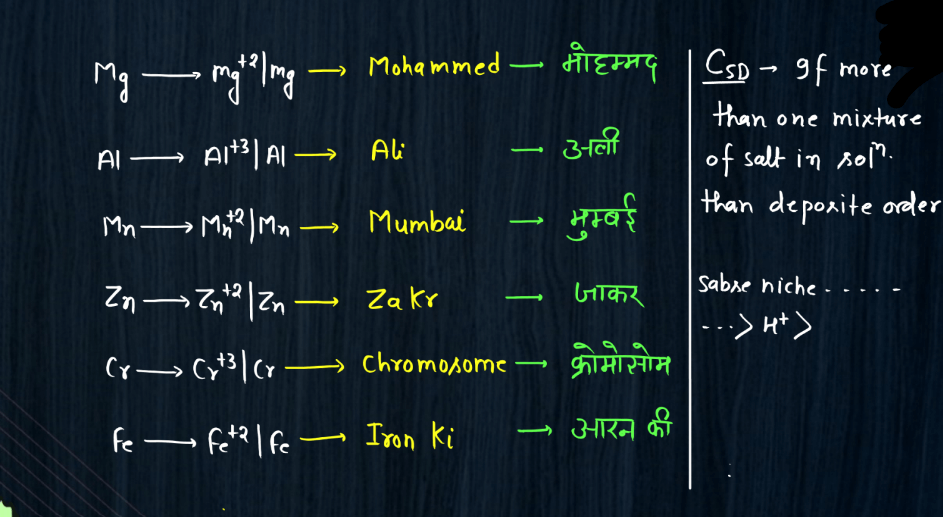 Mg → Mg⁺²|Mg → Mohammed → मोहम्मद
Al → Al⁺³|Al → Ali → अली
Mn → Mn⁺²|Mn → Mumbai → मुम्बई
Zn → Zn⁺²|Zn → Zakr → जाकर
Cr → Cr⁺³|Cr → Chromosome → क्रोमोसोम
Fe → Fe⁺²|Fe → Iron Ki → आरन की
CSD → If more
than one mixture
of salt in solⁿ.
than deposite order
Sabse niche - - - - -
- - -> H⁺ >